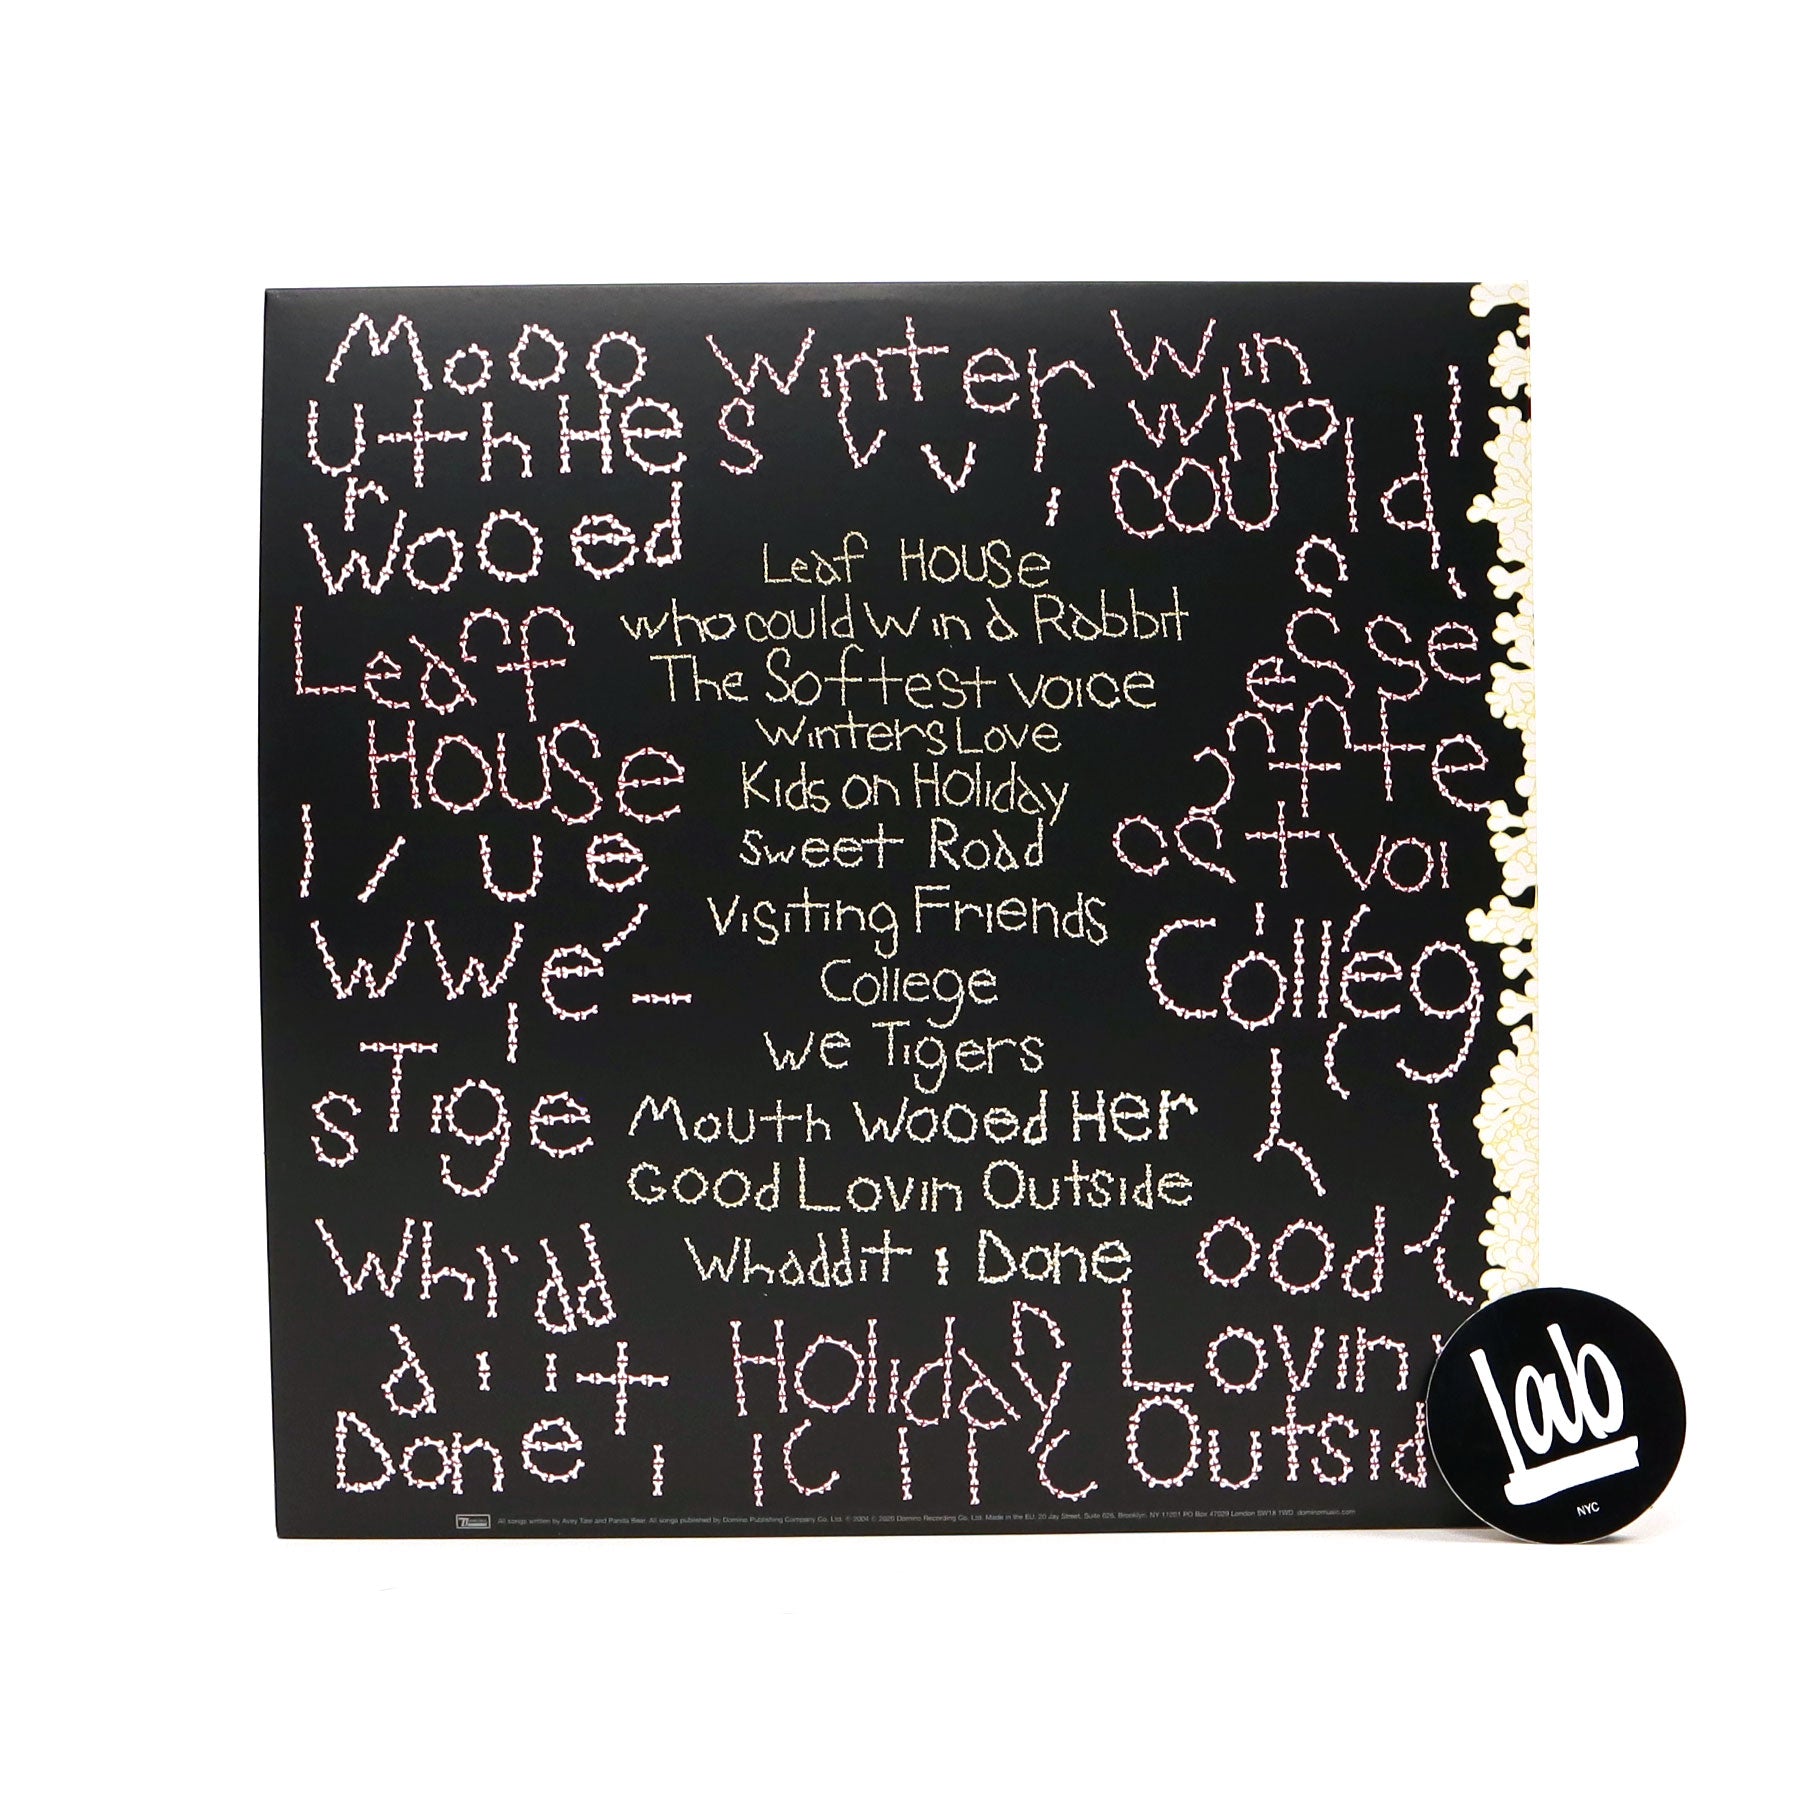 Mooo
uthHe
r
wooed
Winter
s
Win
who
could
Leaf
House
Leaf House
who could Win a Rabbit
The Softest voice
Winters Love
Kids on Holiday
Sweet Road
Visiting Friends
College
We Tigers
Mouth Wooed Her
Good Lovin Outside
Whaddit i Done
esse
ffte
tvoi
Colleg
ue
WWe
sTige
Whi'dd
a i it
Done
Holiday
ood
Lovin
Outsid
All songs written by Avey Tare and Panda Bear. All songs published by Domino Publishing Company Co. Ltd. ℗ 2004 © 2020 Domino Recording Co. Ltd. Made in the EU. 20 Jay Street, Suite 626, Brooklyn, NY 11201 PO Box 47029 London SW18 1WD. dominomusic.com
Lab
NYC